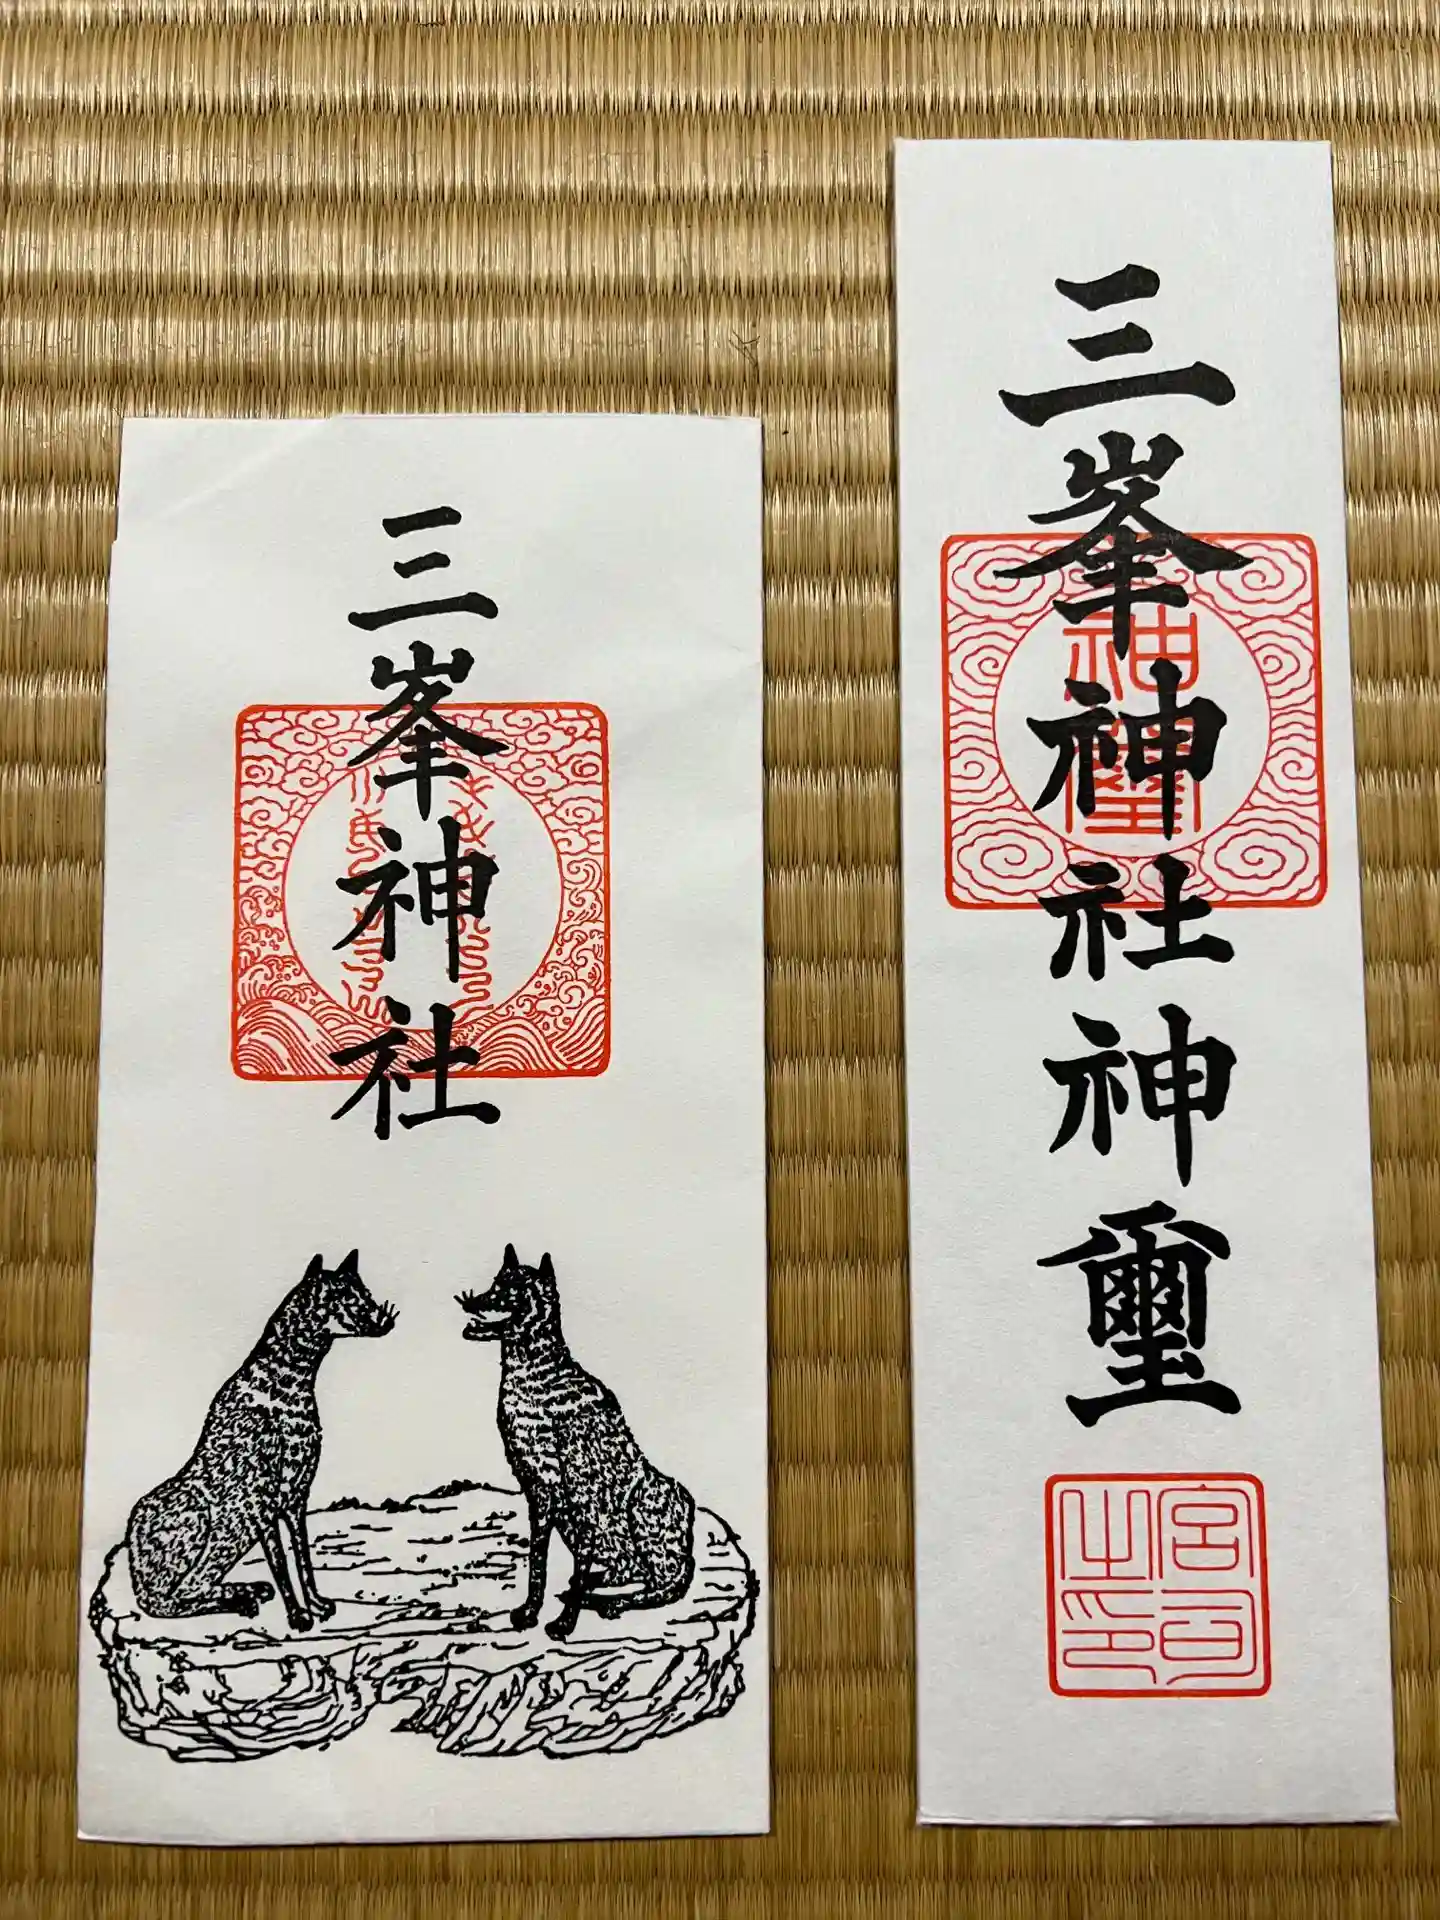 三峯神社
三峯神社神璽
神璽
宮司之印